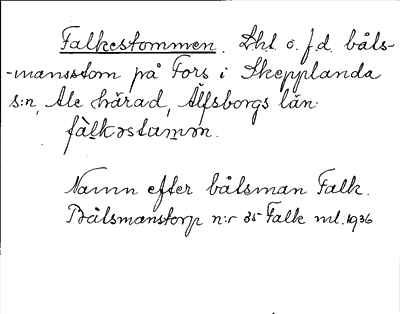 Falkestommen. Lht o. f.d. båls-
-mansstom på Fors i Skepplanda
s:n, Ale härad, Älfsborgs län.
fàlkəstumən.
Namn efter bålsman Falk.
Bålsmanstorp n:r 35 Falk ml. 1936